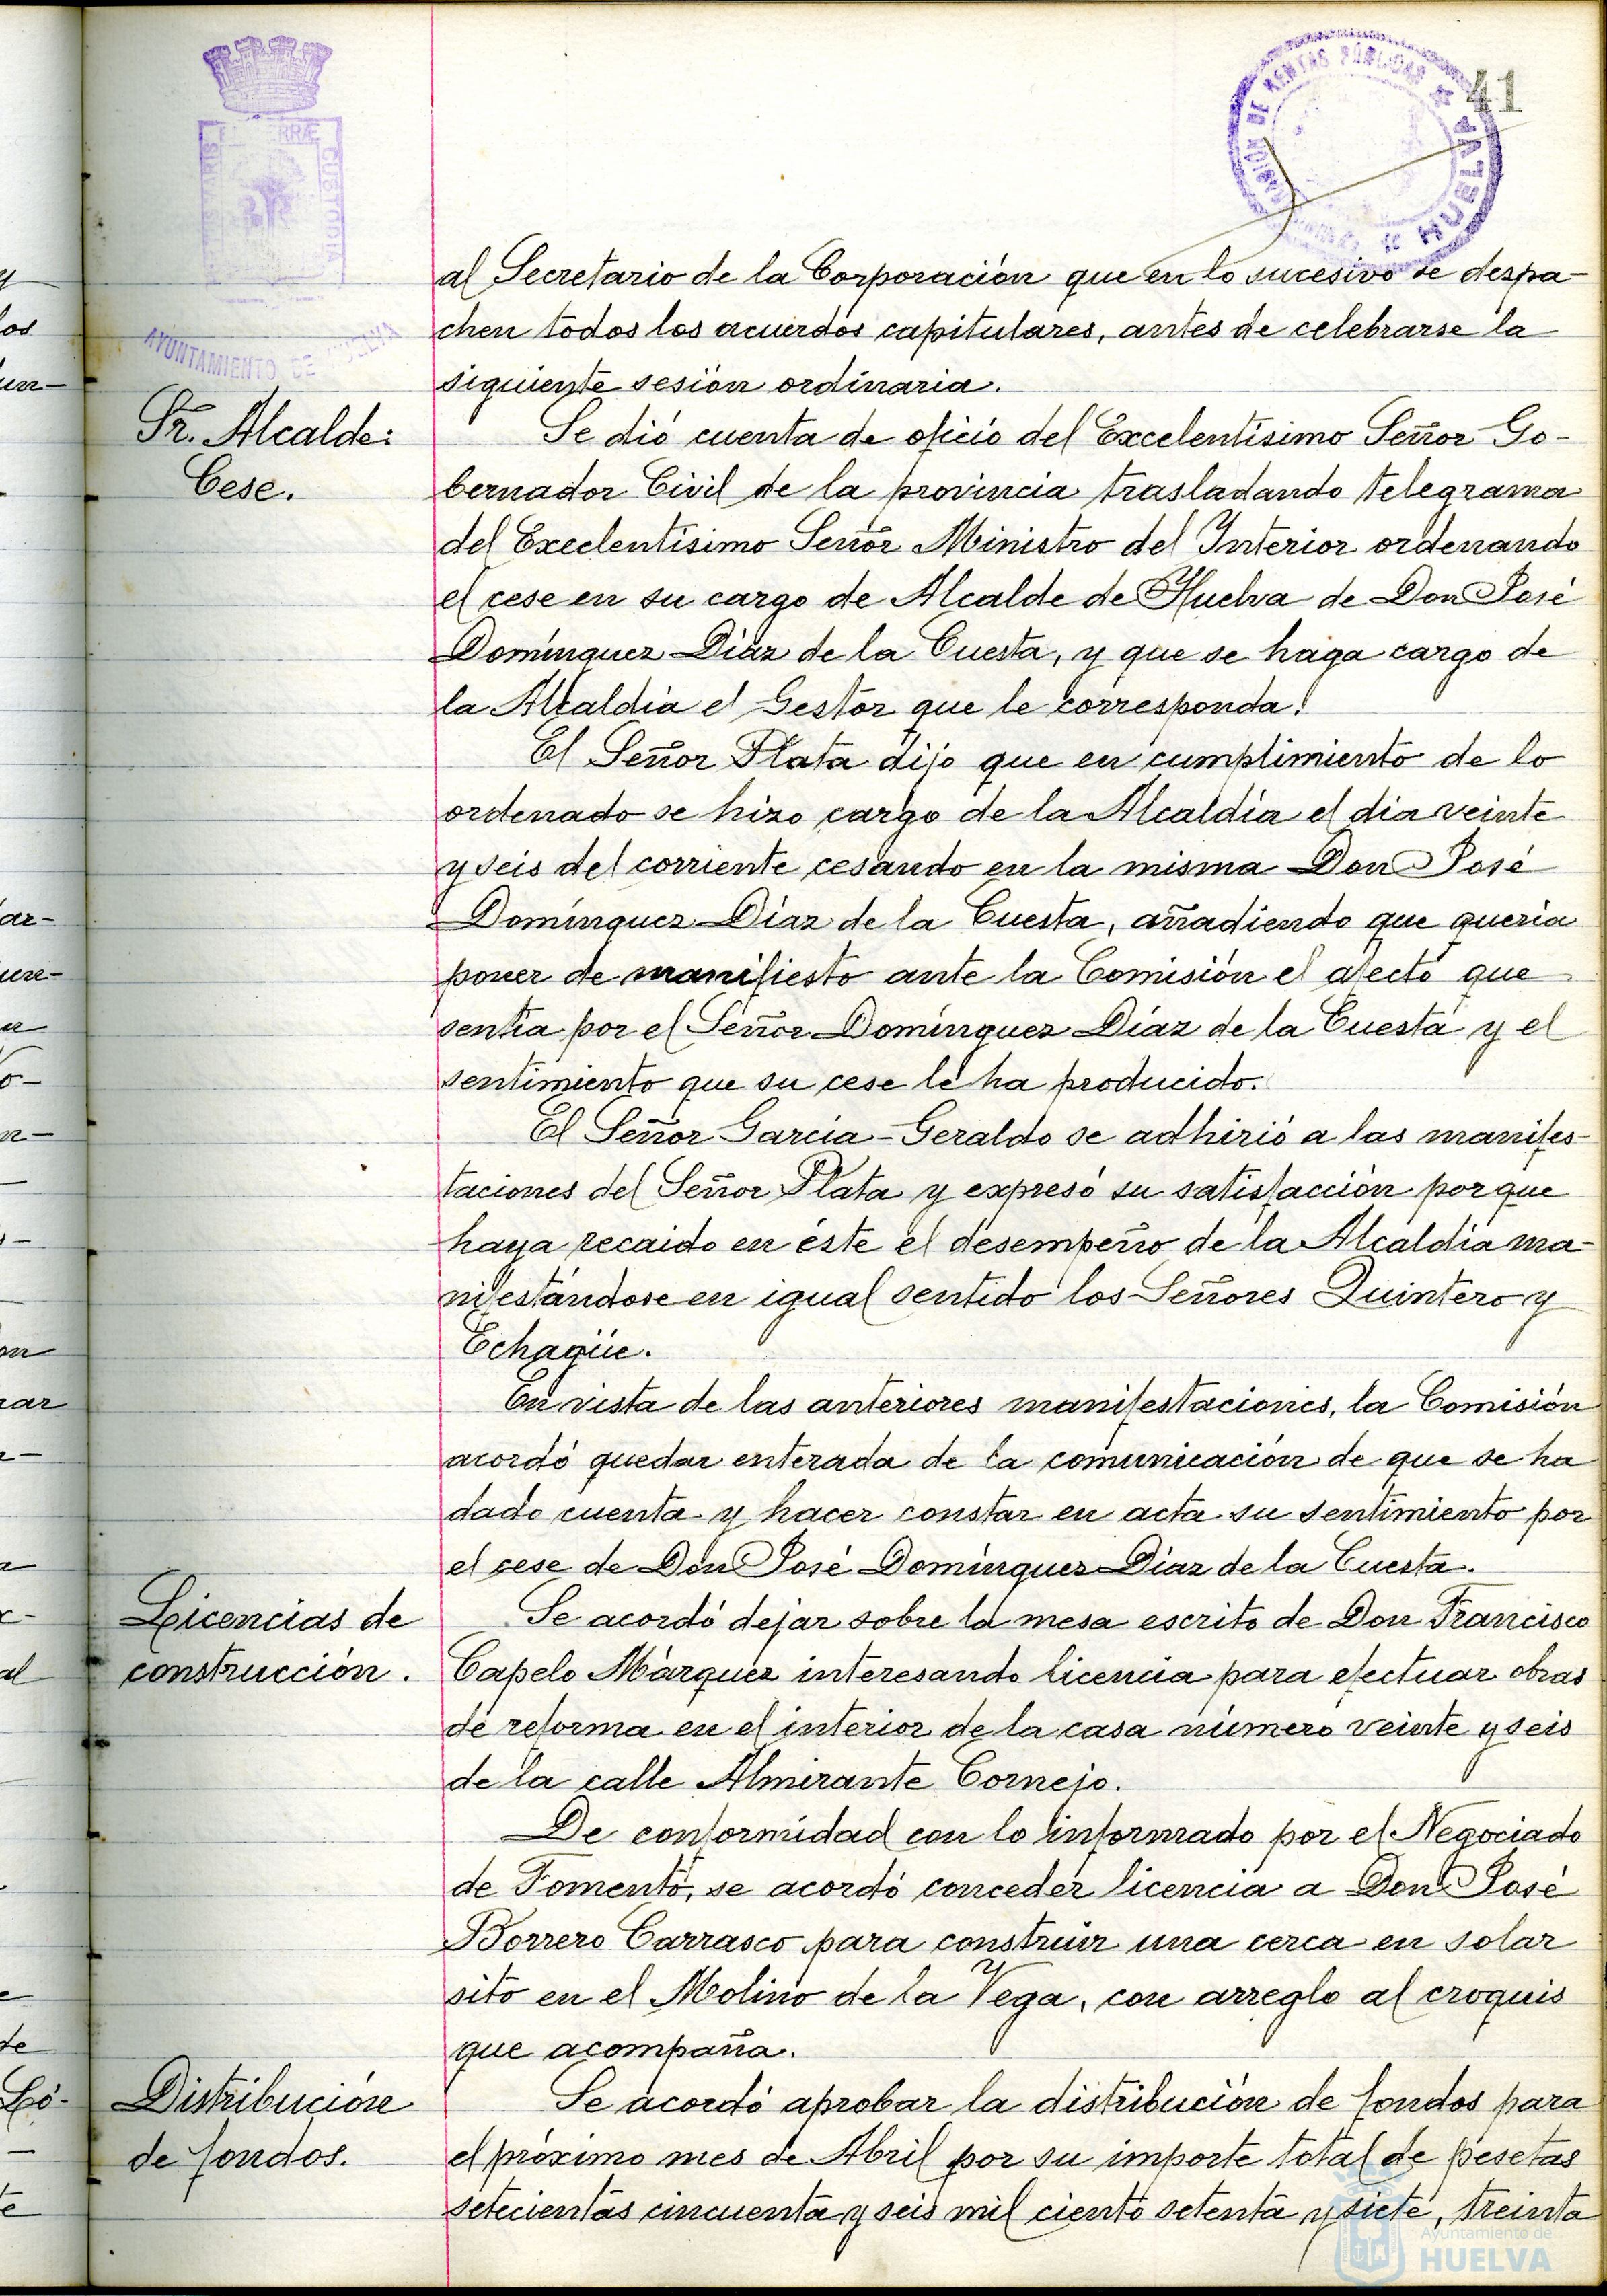 41
AYUNTAMIENTO DE HUELVA
al Secretario de la Corporación que en lo sucesivo se despa-
chen todos los acuerdos capitulares, antes de celebrarse la
siguiente sesión ordinaria.
Sr. Alcalde:
Cese.
Se dió cuenta de oficio del Excelentísimo Señor Go-
bernador Civil de la provincia trasladando telegrama
del Execlentísimo Señor Ministro del Interior ordenando
el cese en su cargo de Alcalde de Huelva de Don José
Domínguez Díaz de la Cuesta, y que se haga cargo de
la Alcaldía el Gestor que le corresponda.
El Señor Plata dijo que en cumplimiento de lo
ordenado se hizo cargo de la Alcaldía el día veinte
y seis del corriente cesando en la misma Don José
Domínguez Díaz de la Cuesta, añadiendo que quería
poner de manifiesto ante la Comisión el afecto que
sentía por el Señor Domínguez Díaz de la Cuesta y el
sentimiento que su cese le ha producido.
El Señor García-Geraldo se adhirió a las manifes-
taciones del Señor Plata y expresó su satisfacción porque
haya recaido en éste el desempeño de la Alcaldía ma-
nifestándose en igual sentido los Señores Quintero y
Echagüe.
En vista de las anteriores manifestaciones, la Comisión
acordó quedar enterada de la comunicación de que se ha
dado cuenta y hacer constar en acta su sentimiento por
el cese de Don José Domínguez Díaz de la Cuesta.
Licencias de
construcción.
Se acordó dejar sobre la mesa escrito de Don Francisco
Capelo Márquez interesando licencia para efectuar obras
de reforma en el interior de la casa número veinte y seis
de la calle Almirante Cornejo.
De conformidad con lo informado por el Negociado
de Fomento, se acordó conceder licencia a Don José
Borrero Carrasco para construir una cerca en solar
sito en el Molino de la Vega, con arreglo al croquis
que acompaña.
Distribución
de fondos.
Se acordó aprobar la distribución de fondos para
el próximo mes de Abril por su importe total de pesetas
setecientas cincuenta y seis mil ciento setenta y siete, treinta
Ayuntamiento de
HUELVA